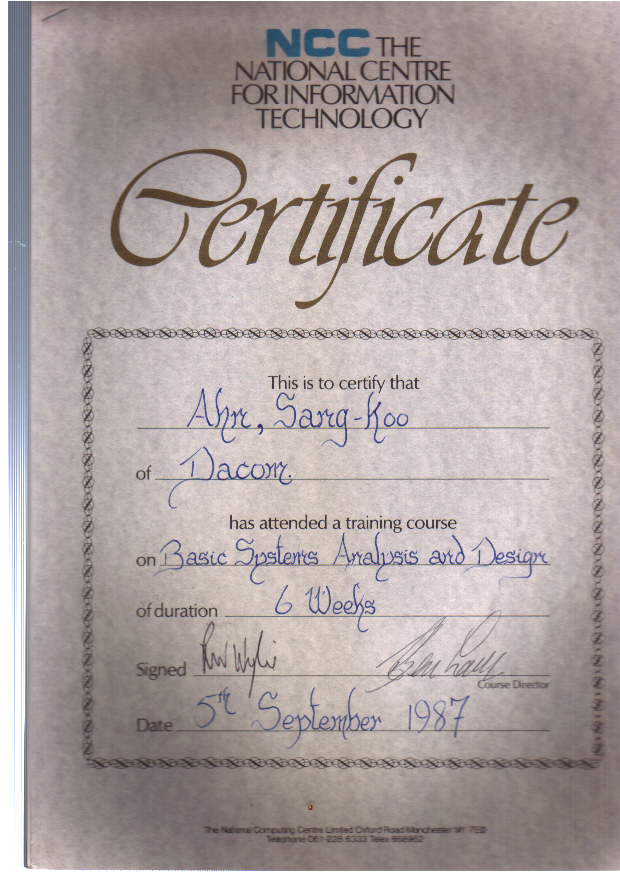 NCC THE
NATIONAL CENTRE
FOR INFORMATION
TECHNOLOGY
Certificate
This is to certify that
Ahn, Sang-Koo
of Dacom.
has attended a training course
on Basic Systems Analysis and Design
of duration 6 Weeks
Signed RW Wylie
Course Director
Date 5th September 1987
The National Computing Centre Limited Oxford Road Manchester M1 7ED
Telephone 061-228 6333 Telex 668962